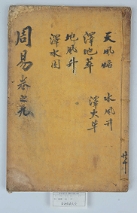 天風姤
澤地萃
地風升
澤水困
水風井
澤火革
周易 卷之九